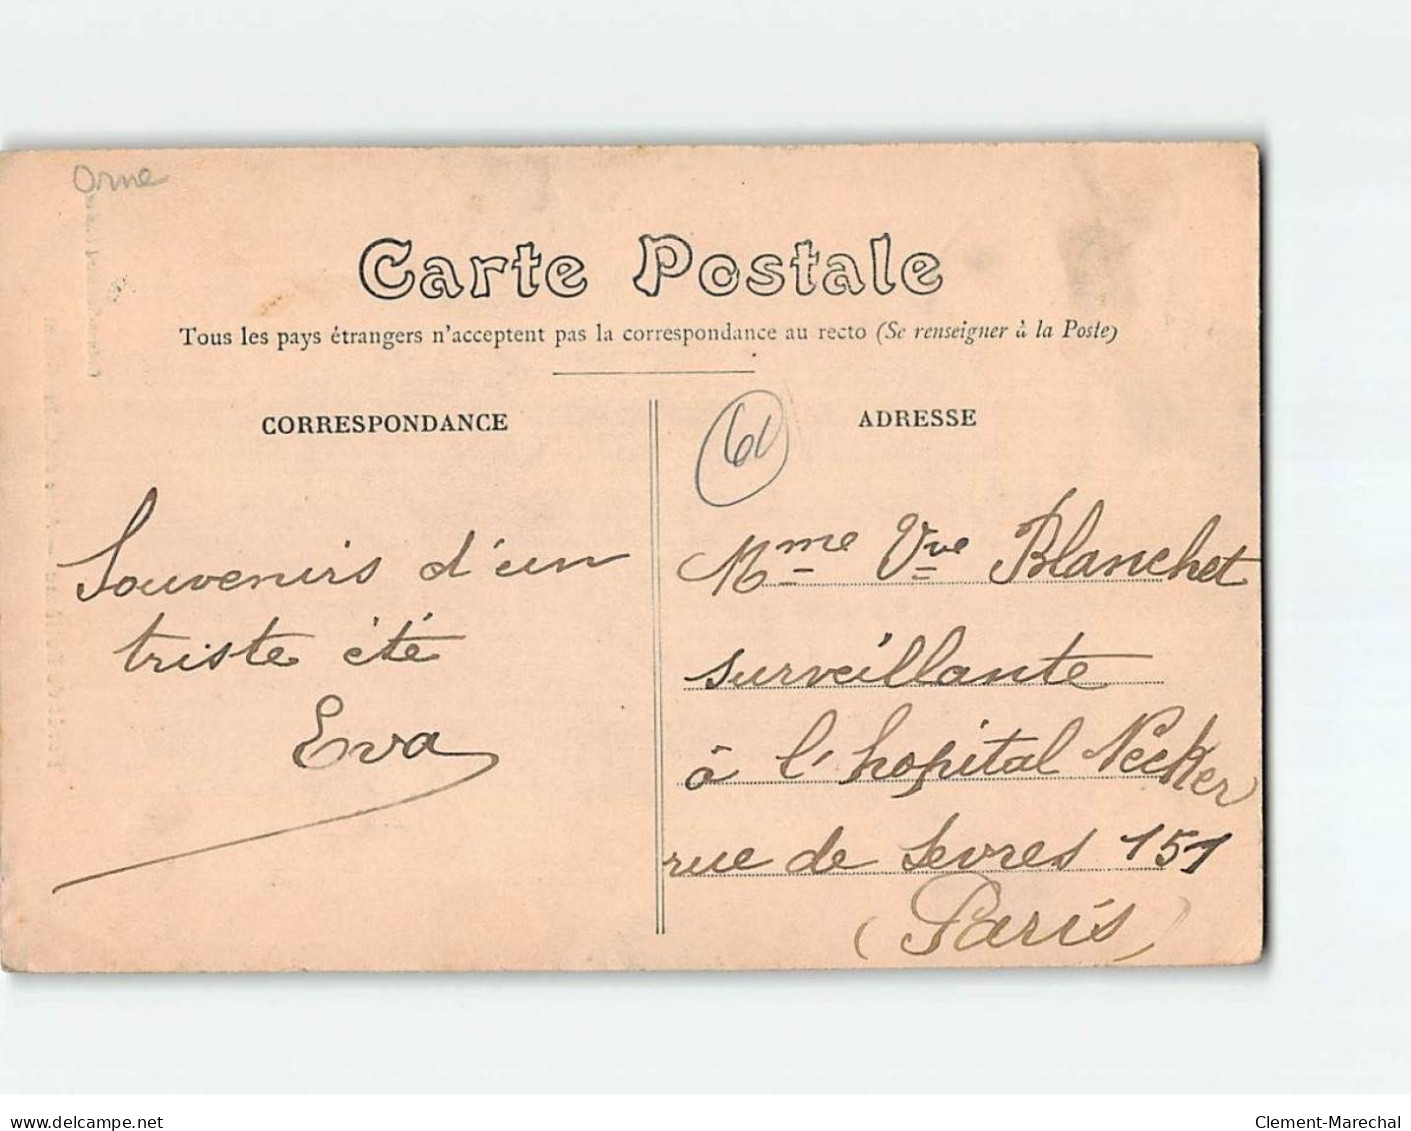 Orne
Carte Postale
Tous les pays étrangers n'acceptent pas la correspondance au recto (Se renseigner à la Poste)
CORRESPONDANCE
Souvenirs d'un
triste été
Eva
61
ADRESSE
Mme Vve Blanchet
surveillante
à l'hopital Necker
rue de Sevres 151
(Paris)
www.delcampe.net
Clement-Marechal